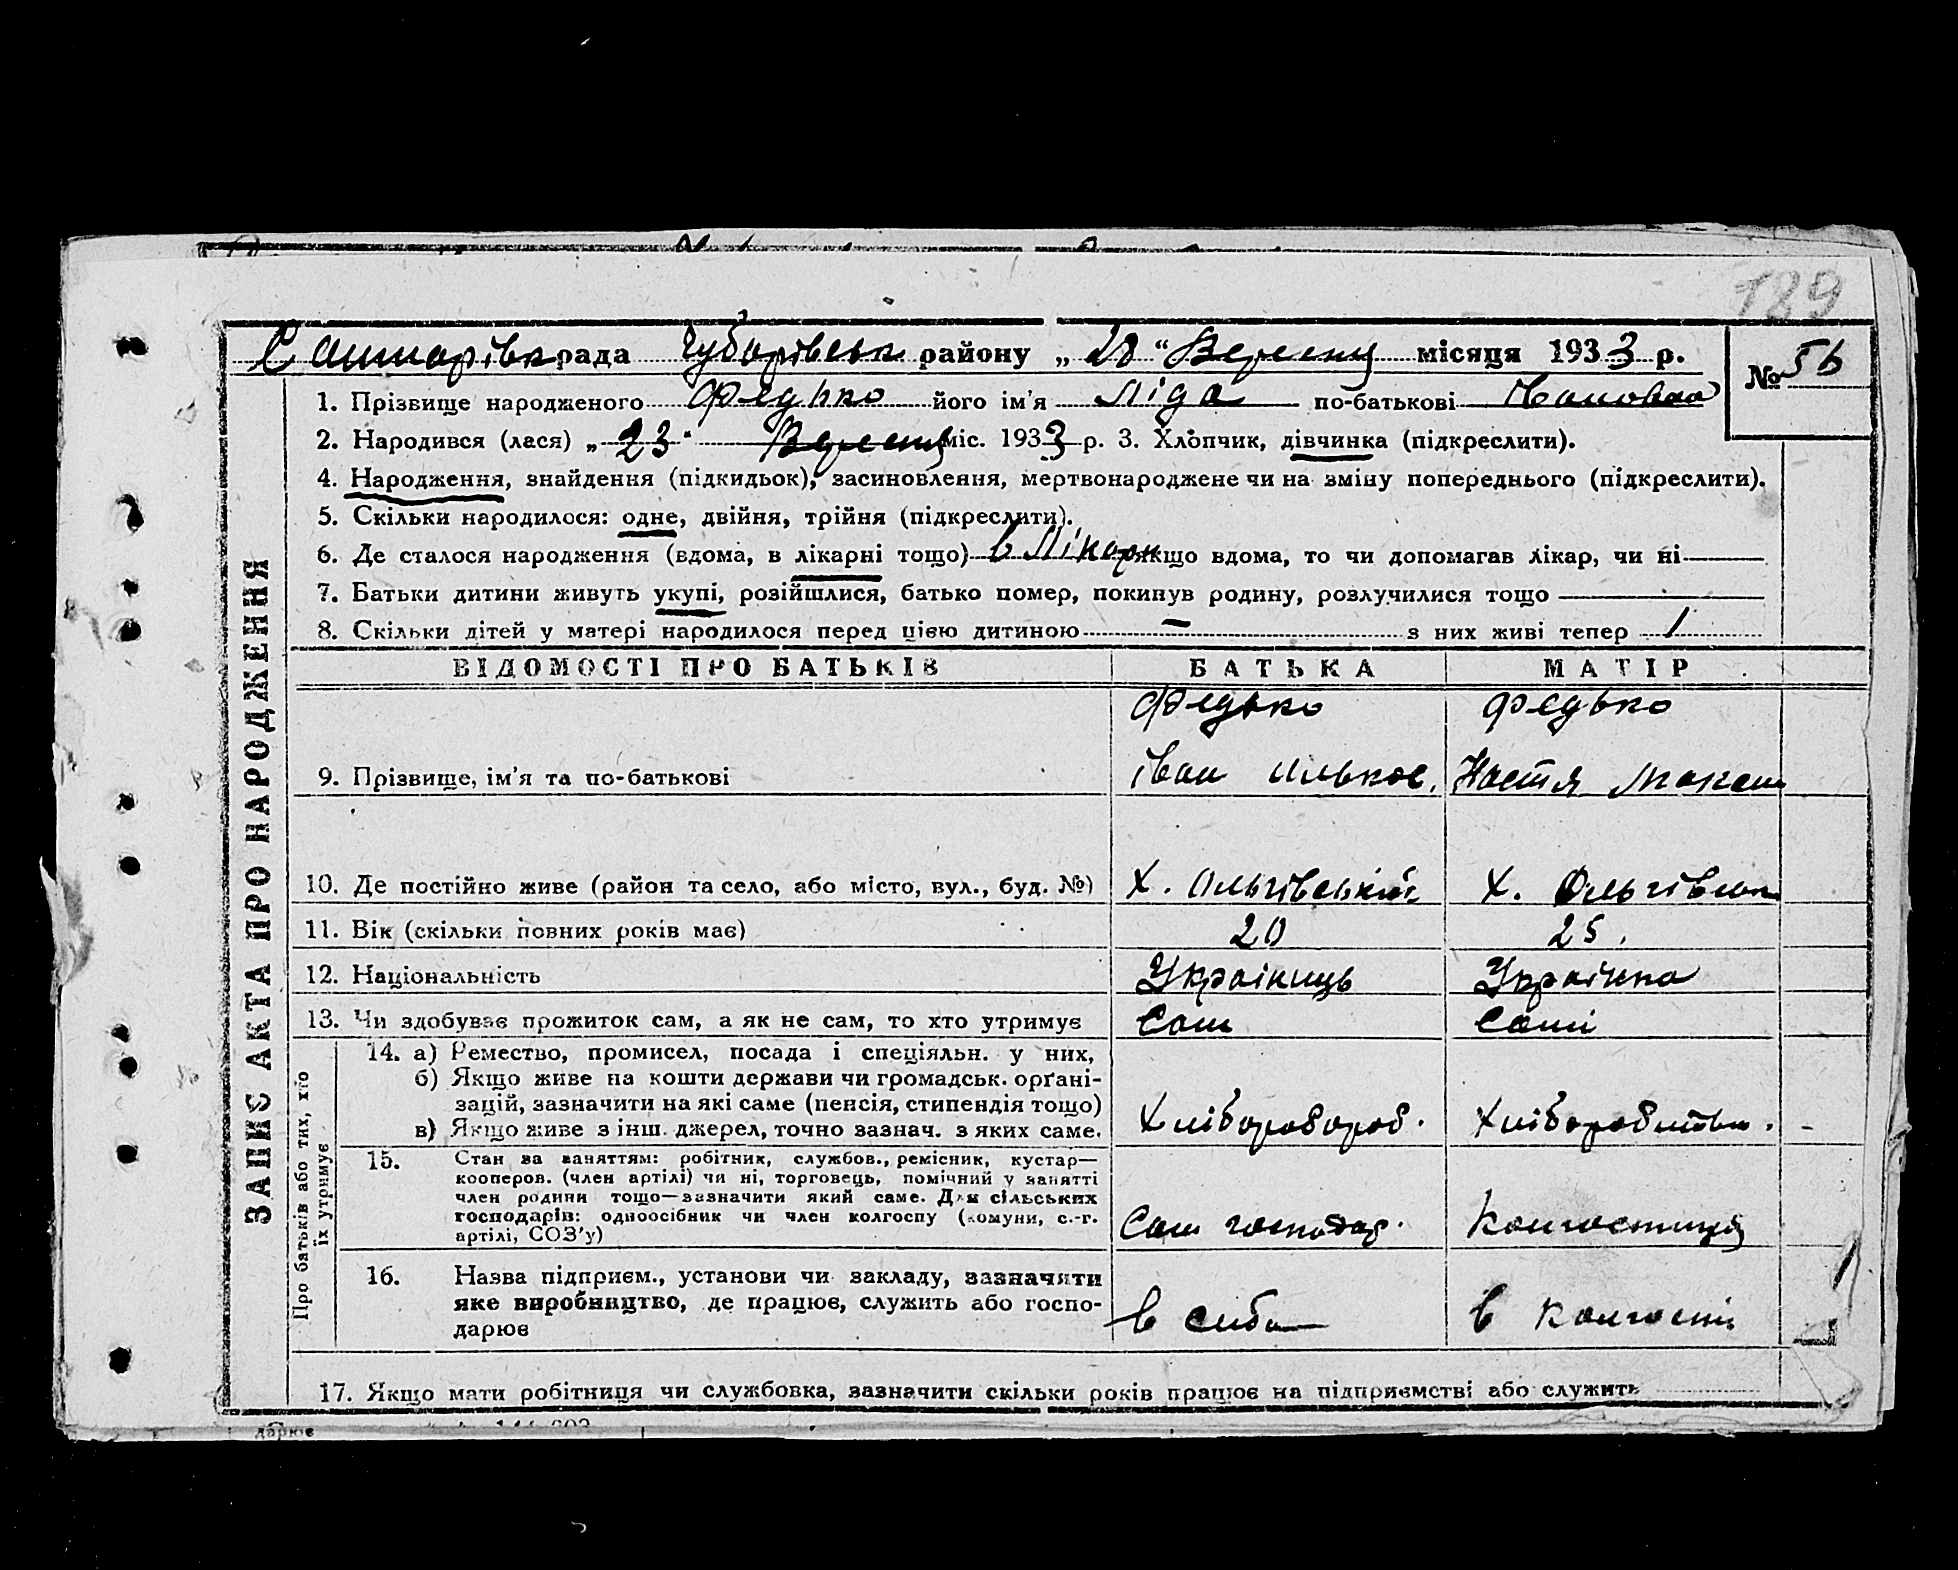 189
рада Губарівськ району „28“ Вересня місяця 1933 р.
№ 56
1. Прізвище народженого Федько його ім'я Ліда по-батькові Івановна
2. Народився (лася) „23“ Вересня міс. 1933 р. 3. Хлопчик, дівчинка (підкреслити).
4. Народження, знайдення (підкидьок), засиновлення, мертвонароджене чи на зміну попереднього (підкреслити).
5. Скільки народилося: одне, двійня, трійня (підкреслити).
6. Де сталося народження (вдома, в лікарні тощо) в Лікарн якщо вдома, то чи допомагав лікар, чи ні
7. Батьки дитини живуть укупі, розійшлися, батько помер, покинув родину, розлучилися тощо
8. Скільки дітей у матері народилося перед цією дитиною – з них живі тепер 1
ЗАПИС АКТА ПРО НАРОДЖЕННЯ
ВІДОМОСТІ ПРО БАТЬКІВ БАТЬКА МАТІР
Федько Федько
9. Прізвище, ім'я та по-батькові Іван Ільков. Настя Максим
10. Де постійно живе (район та село, або місто, вул., буд. №) Х. Ольгівський Х. Ольгівськ
11. Вік (скільки повних років має) 20 25.
12. Національність Українець Українка
13. Чи здобуває прожиток сам, а як не сам, то хто утримує Сам Самі
Про батьків або тих, хто їх утримує
14. а) Ремество, промисел, посада і спеціяльн. у них,
б) Якщо живе на кошти держави чи громадськ. орґані-
зацій, зазначити на які саме (пенсія, стипендія тощо)
в) Якщо живе з інш. джерел, точно зазнач. з яких саме. Хліборобороб. Хліборобитва.
15. Стан за заняттям: робітник, службов., ремісник, кустар—
кооперов. (член артілі) чи ні, торговець, помічний у занятті
член родини тощо—зазначити який саме. Для сільських
господарів: одноосібник чи член колгоспу (комуни, с.-г.
артілі, СОЗ'у) Сам господар. Колгоспниця
16. Назва підприєм., установи чи закладу, зазначити
яке виробництво, де працює, служить або госпо-
дарює в себе в Колгоспі
17. Якщо мати робітниця чи службовка, зазначити скільки років працює на підприємстві або служить
дарює